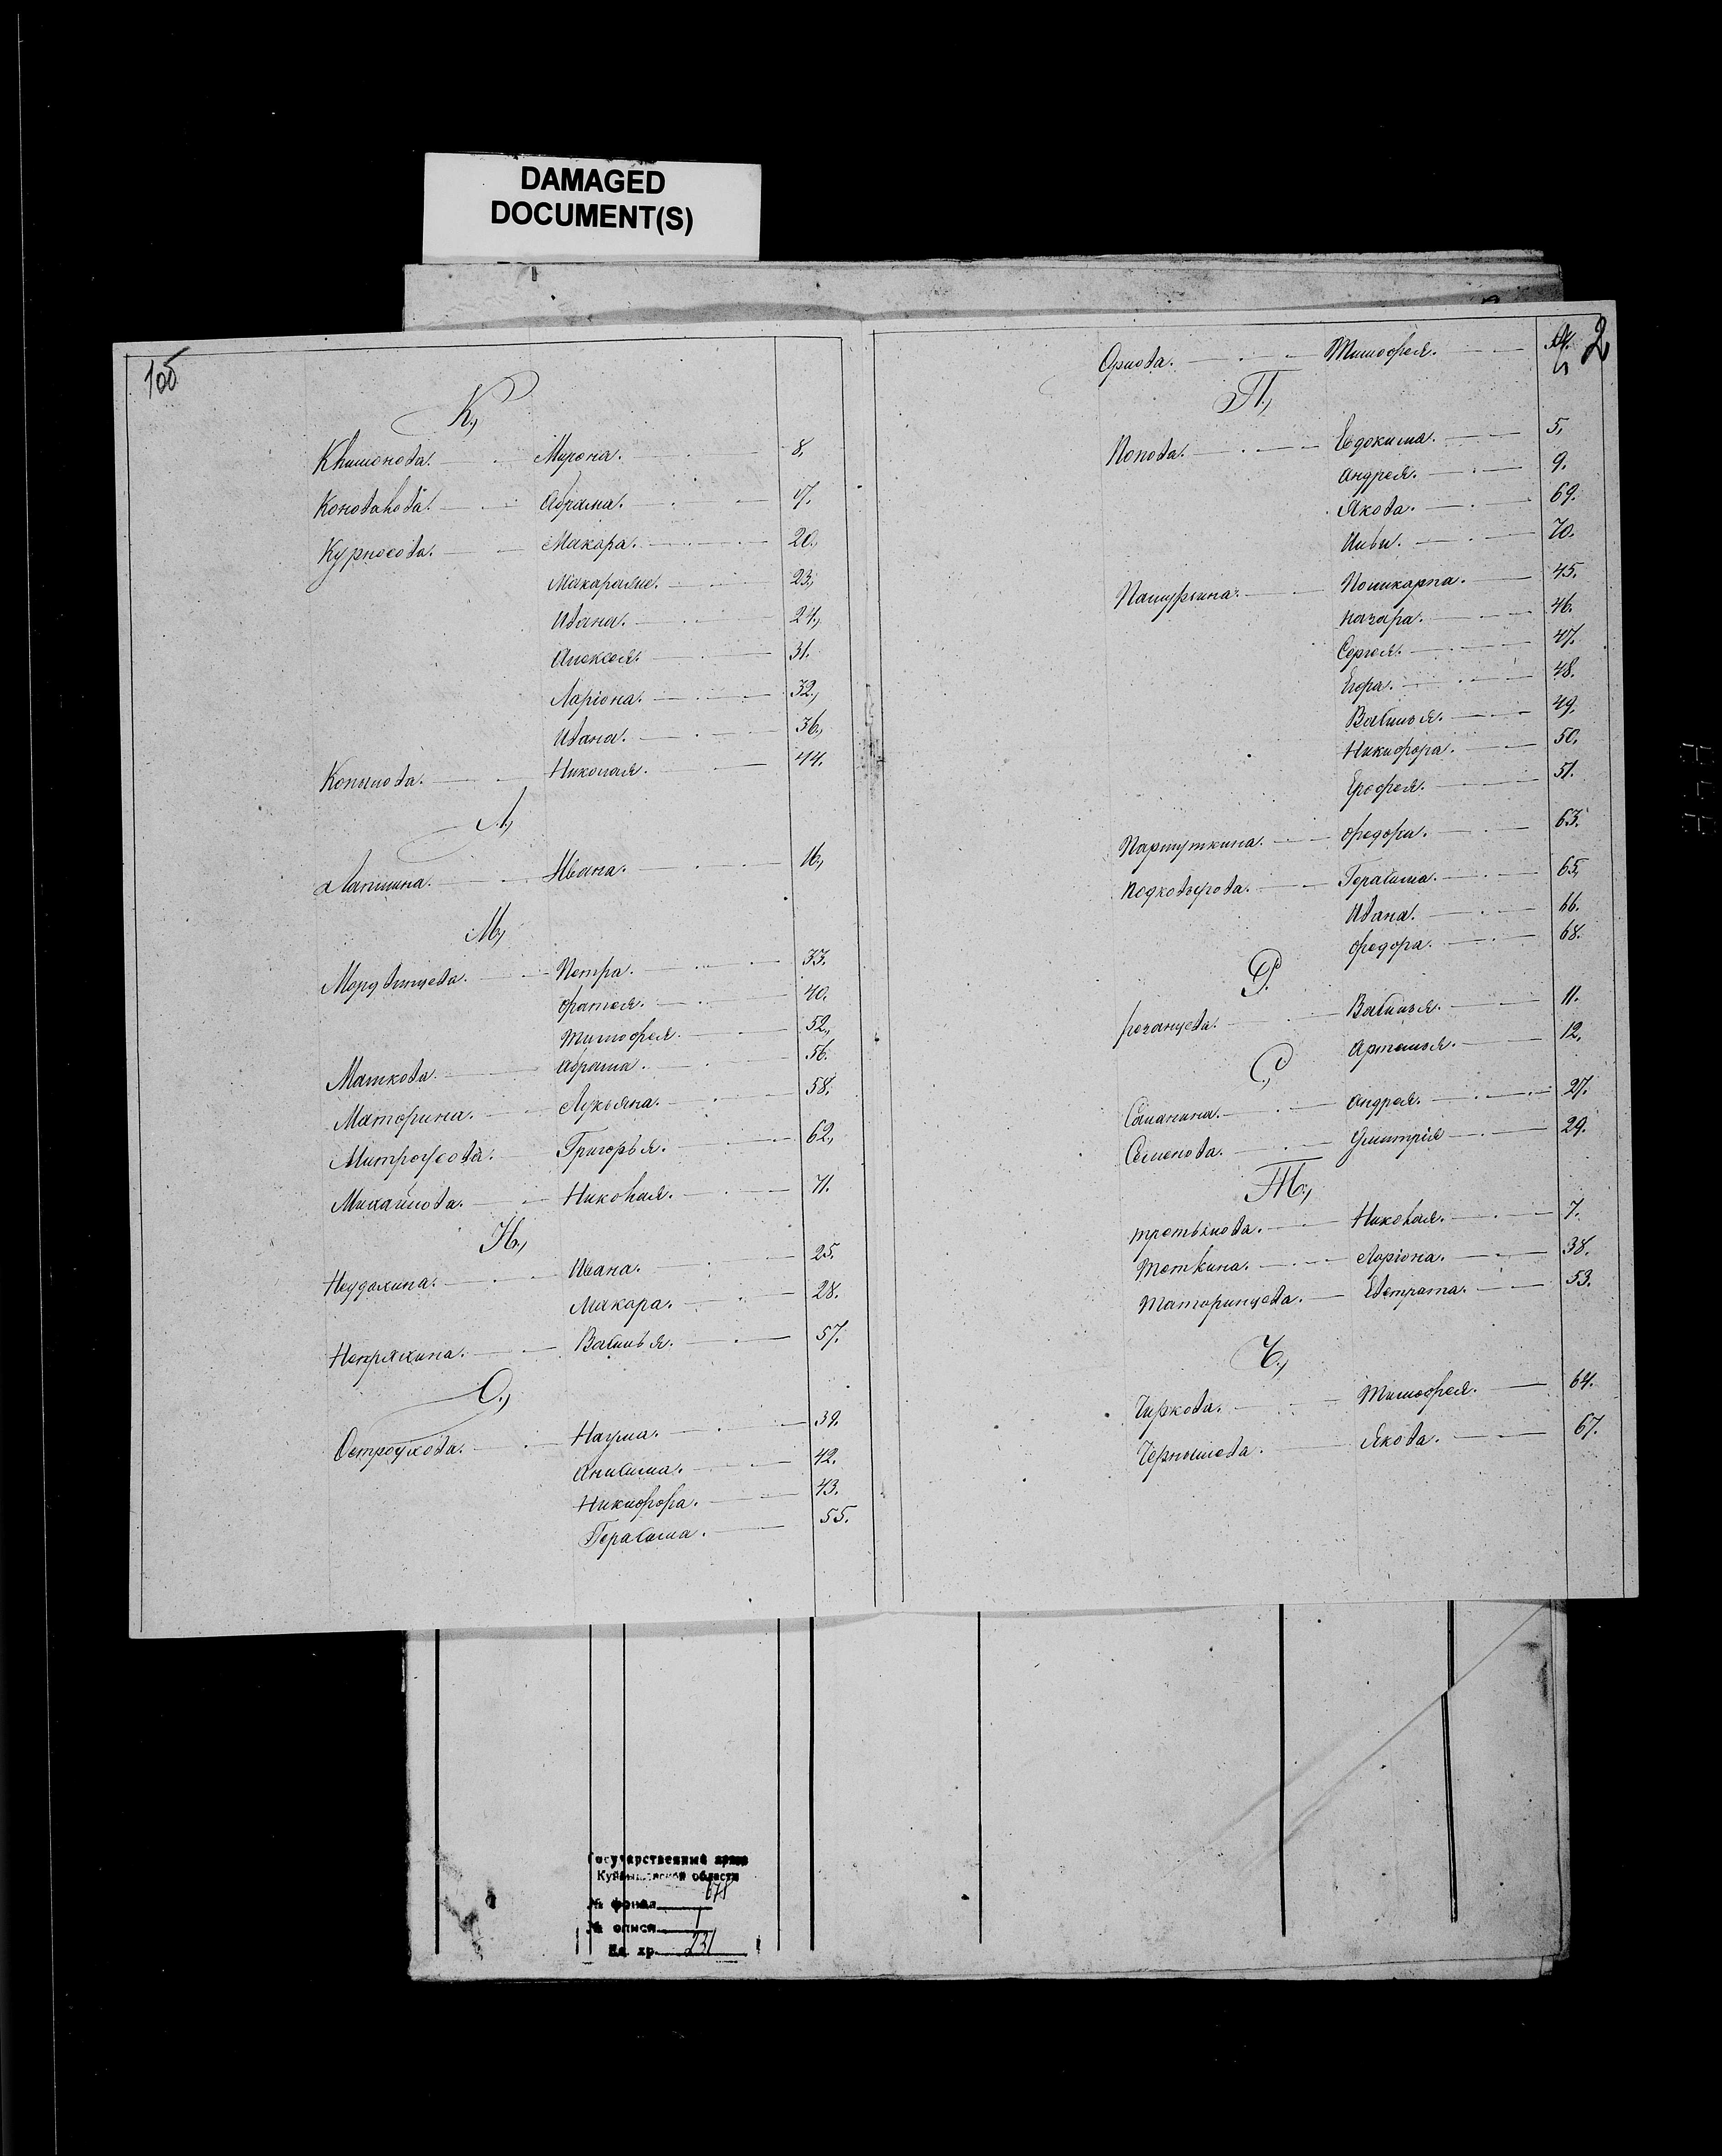 DAMAGED
DOCUMENT(S)
105
К.,
Климонова. Мирона. 8.
Коновалова. Абрама. 17.
Курносова. Макара. 20.
23.
Ивана. 24.
Алексея. 31.
Ларiона. 32.
Ивана. 36.
Копылова. Николая. 44.
Л.,
Лапшина. Ивана. 16.
М.,
Мордвинцева. Петра. 33.
Фатея. 40.
Тимофея. 52.
Маткова. Абрама. 56.
Маторина. Лукьяна. 58.
Григорья. 62.
Михайлова. Николая. 71.
Н.,
Неудахина. Ивана. 25.
Макара. 28.
Непряхина. Василья. 57.
О.,
Остроухова. Наума. 39.
Анисима. 42.
Никифора. 43.
Герасима. 55.
2
Орлова. Тимофея.
П.,
Попова. Евдокима. 5.
Андрея. 9.
Якова. 69.
Ильи. 70.
Поликарпа. 45.
Назара. 46.
Сергея. 47.
Егора. 48.
Василья. 49.
Никифора. 50.
Ерофея. 51.
Паршуткина. Федора. 63.
Подковырова. Герасима. 65.
Ивана. 66.
Федора. 68.
Р.
Резанцева. Василья. 11.
Артемья. 12.
С.,
Саманина. Андрея. 27.
Семенова. Дмитрiя 29.
Т.,
Третьякова. Николая. 7.
Теткина. Ларiона. 38.
Таторинцева. Евстрата. 53.
Ч.,
Чиркова. Тимофея. 64.
Чернышова. Якова. 67.
Государственный архив
Куйбышевской области
№ фонда 678
№ описи 1
Ед. хр. 231